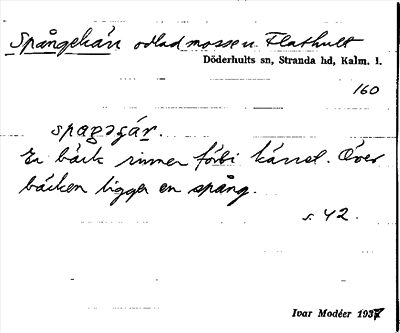 Spångekärr odlad mosse u. Flathult
Döderhults sn, Stranda hd, Kalm. l.
160
spaŋəɟár.
En bäck rinner förbi kärret. Över
bäcken ligger en spång.
s. 42.
Ivar Modéer 1937